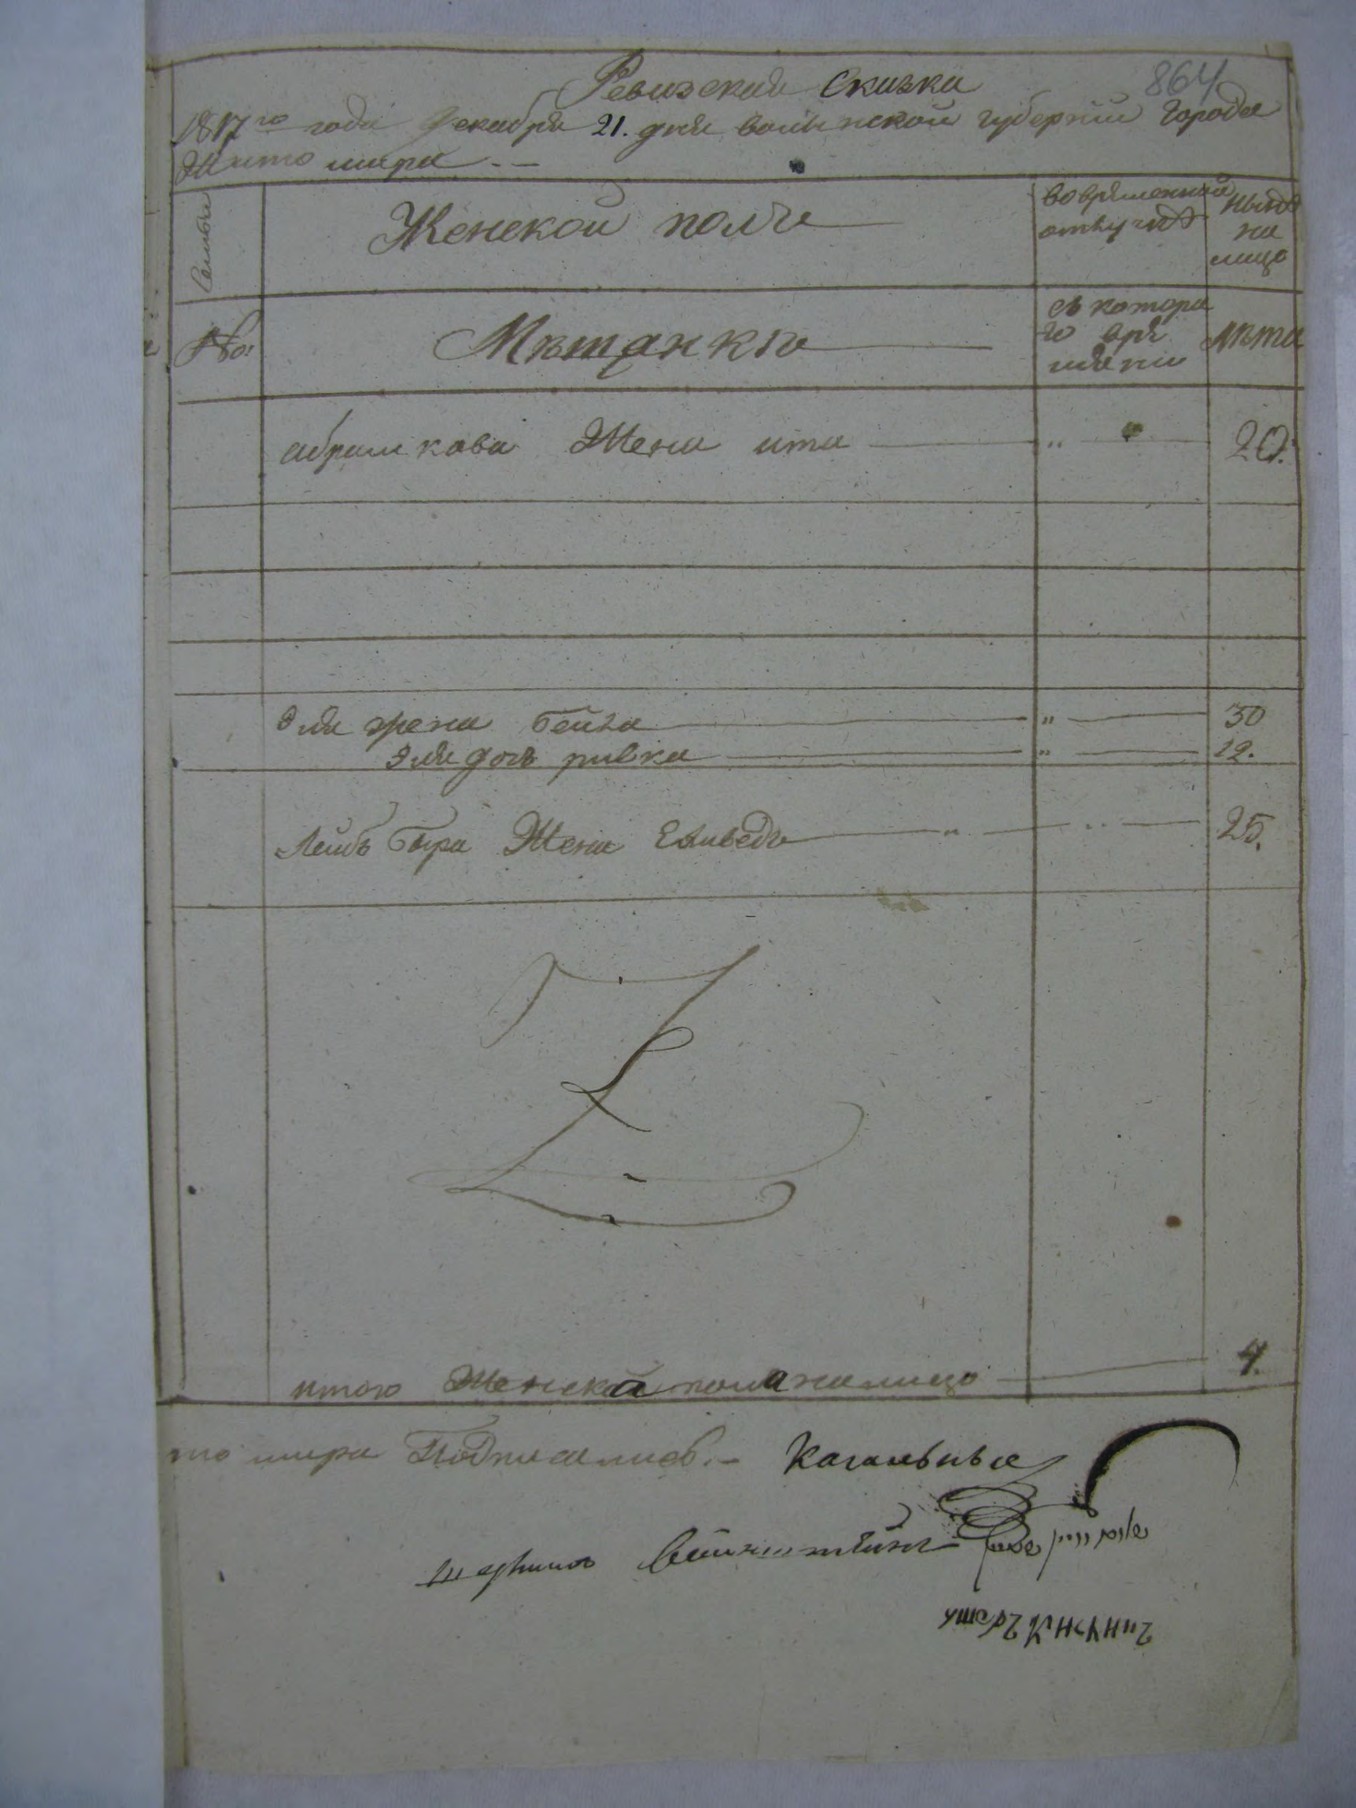 864
Ревизская Сказка
1817го года Декабря 21. дня волынской губернии Города
Житомира
Семьи
Женской полъ
во врѣменной отлучкѣ
нынѣ на лицо
No:
Мѣщанкъ
съ котораго врѣмяни
Лѣта
абрамкова Жена ита 20.
Эля жена бейла 30
Эля дочь ривка 12.
Лейбъ Жена 25.
итого Женска пола налицо 4.
то мира Подписались. Кагальные
שלום